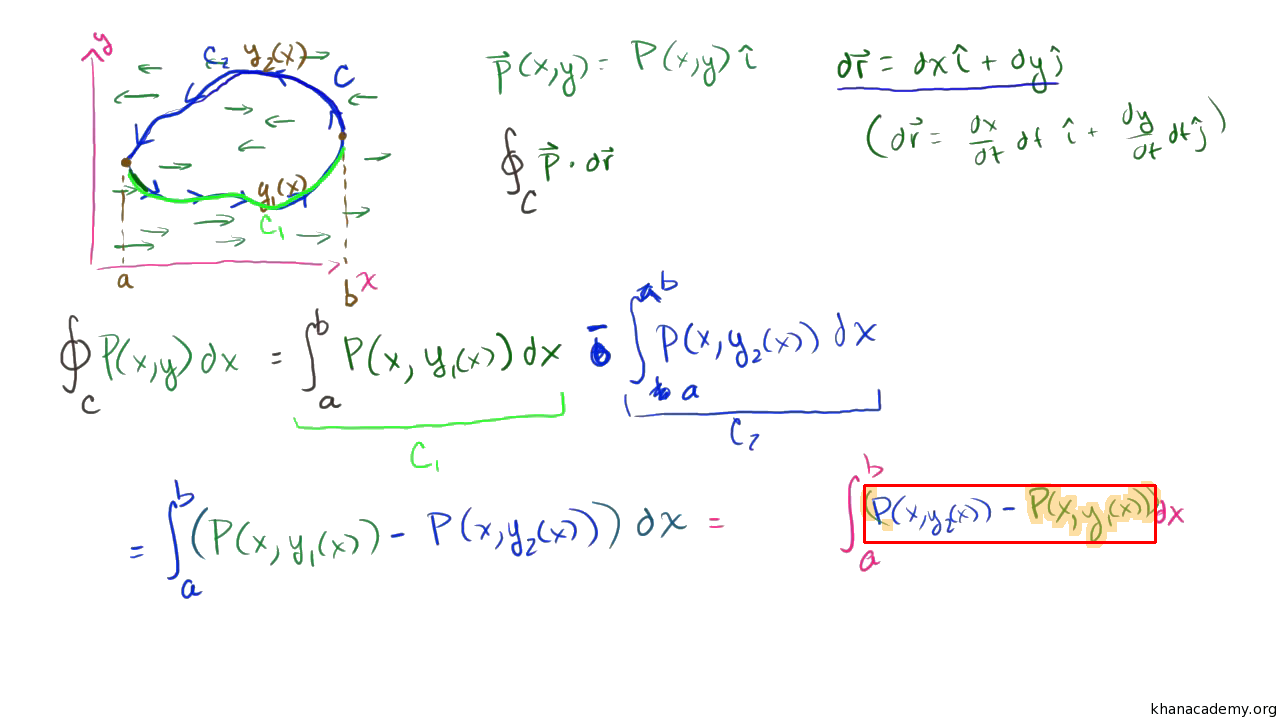 y
C₂ y₂(x)
C
y₁(x)
C₁
a
b x
P⃗(x,y) = P(x,y) î
dr⃗ = dx î + dy ĵ
(dr⃗ = dx/dt dt î + dy/dt dt ĵ)
∮_C P⃗ · dr⃗
∮_C P(x,y) dx = ∫_a^b P(x, y₁(x)) dx - ∫_a^b P(x, y₂(x)) dx
C₁ C₂
= ∫_a^b (P(x, y₁(x)) - P(x, y₂(x))) dx = ∫_a^b (P(x, y₂(x)) - P(x, y₁(x))) dx
khanacademy.org